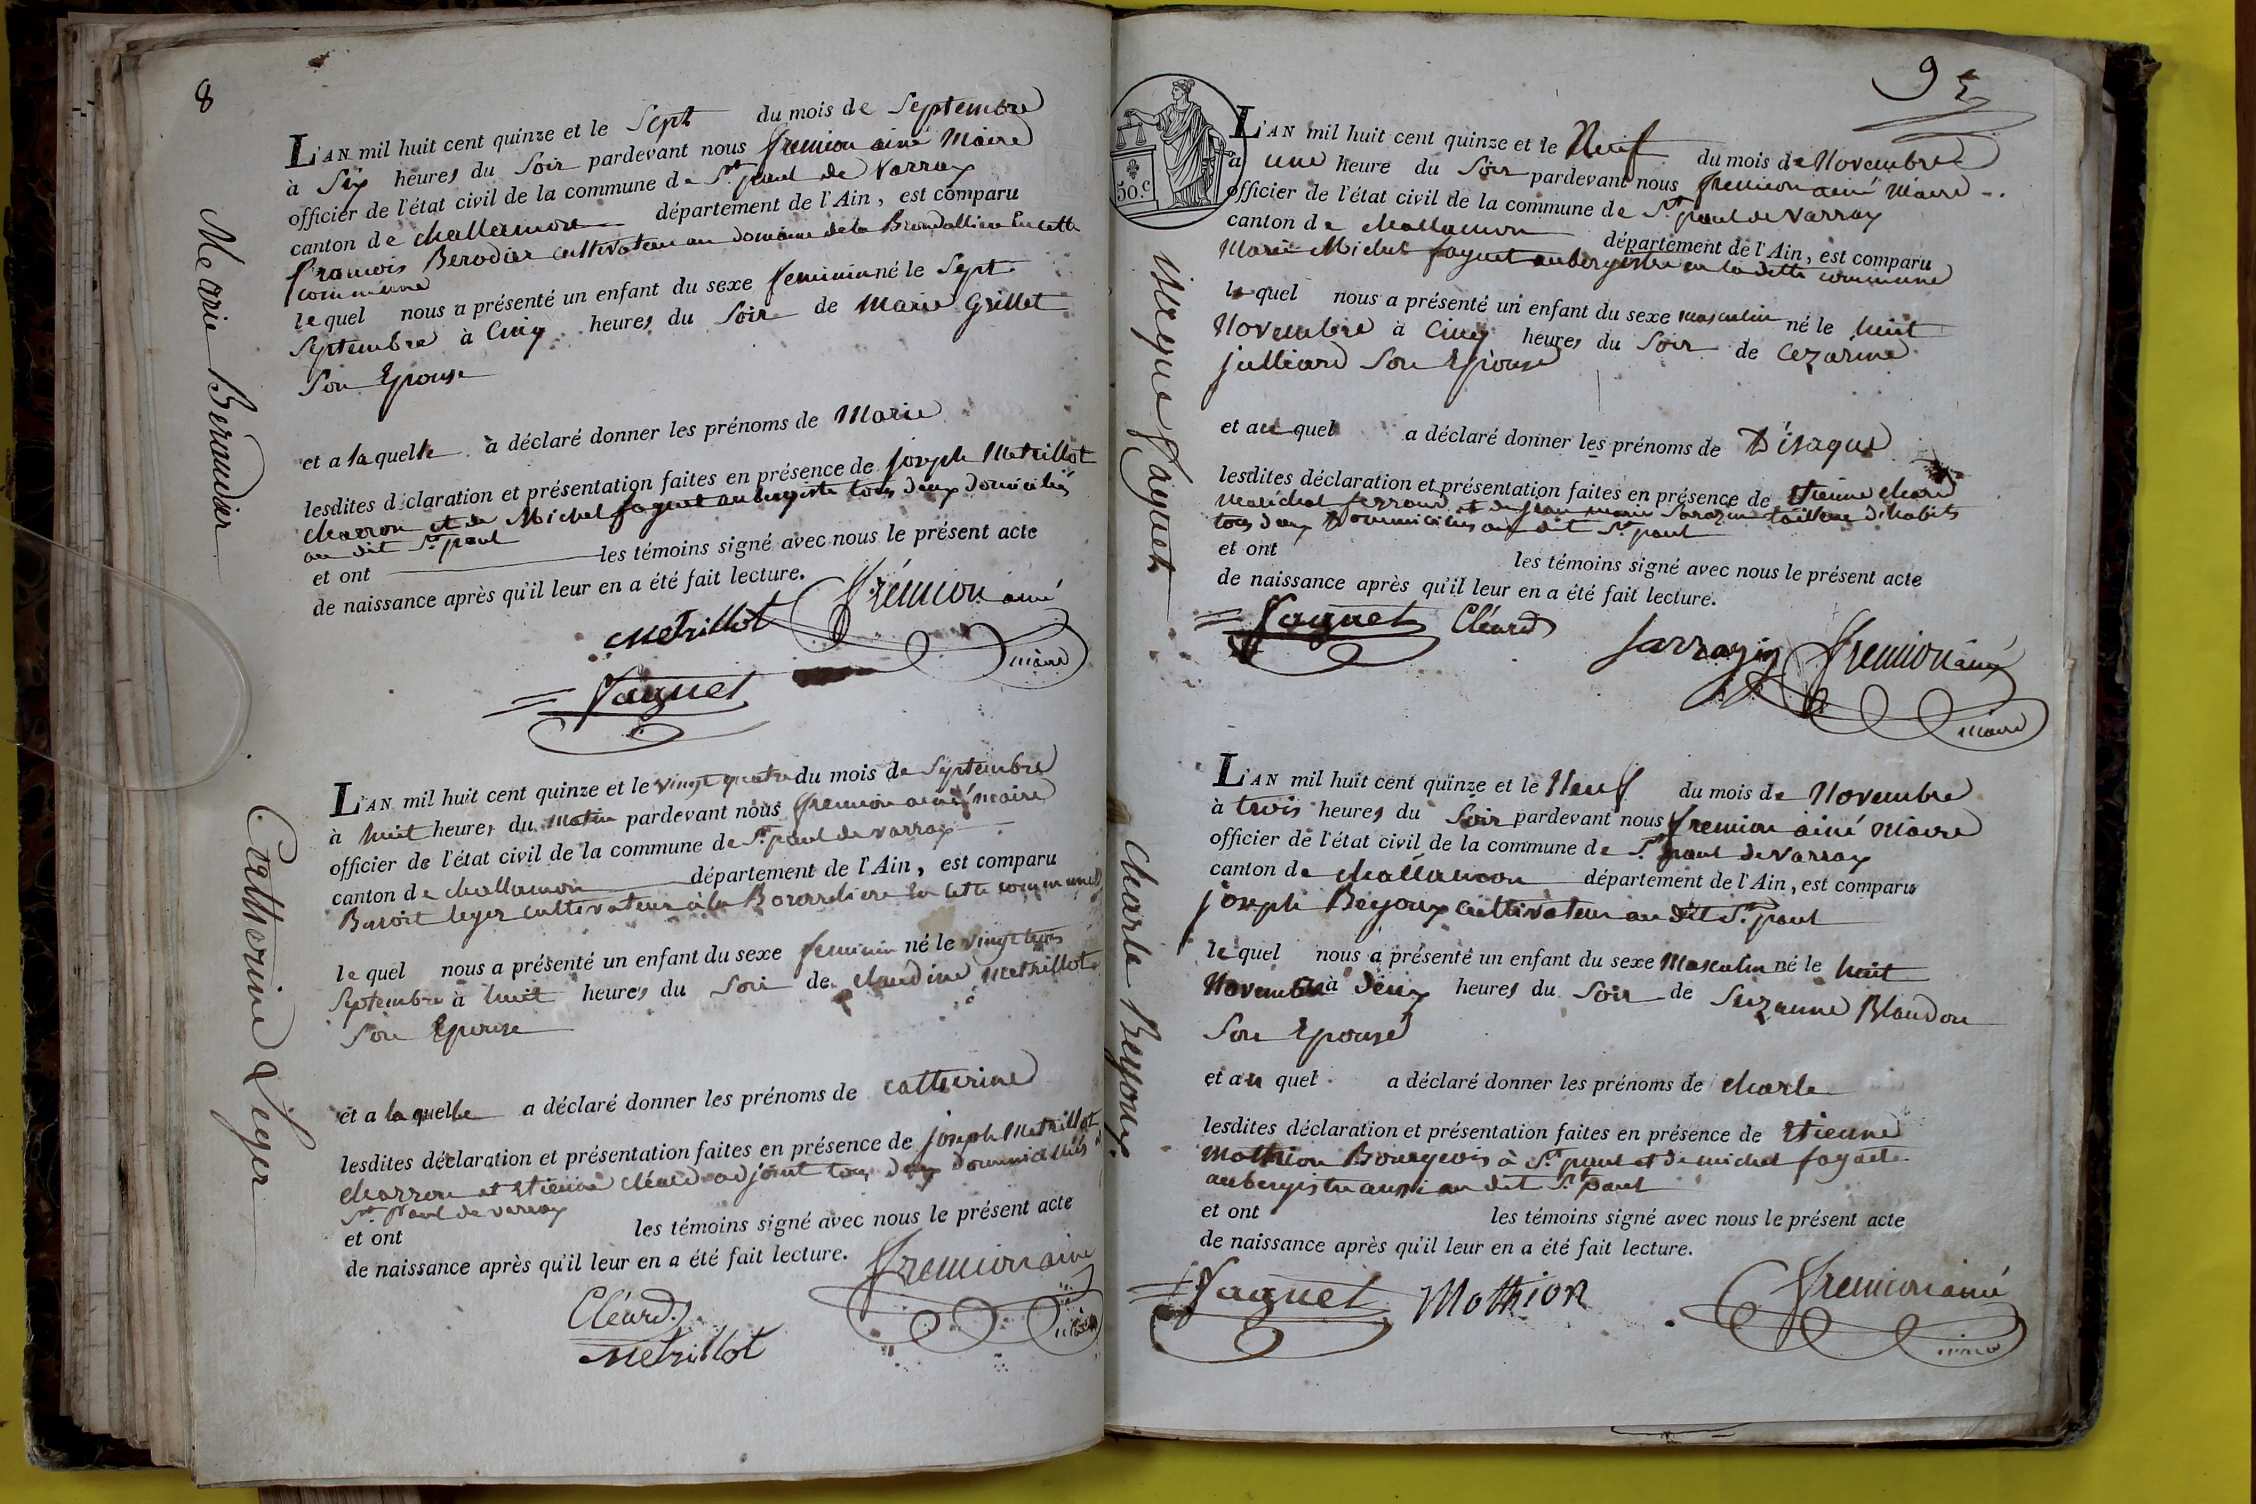 8
Marie Beraudier
L'AN mil huit cent quinze et le Sept du mois de Septembre
à Six heures du Soir pardevant nous fremion ainé Maire
officier de l'état civil de la commune de St paul de Varrax
canton de challamon département de l'Ain, est comparu
francois Berodier cultivateur au domaine de la En cette
commune
le quel nous a présenté un enfant du sexe feminin né le Sept
Septembre à Cinq heures du Soir de Marie Grillet
Son Epouse
et a la quelle a déclaré donner les prénoms de Marie
lesdites déclaration et présentation faites en présence de joseph Metrillot
charron et de Michel faguet aubergiste tous deux domiciliés
au dit St paul
et ont les témoins signé avec nous le présent acte
de naissance après qu'il leur en a été fait lecture.
Metrillot frémion ainé
maire
faguet
Catherine Leger
L'AN mil huit cent quinze et le vingt quatre du mois de Septembre
à huit heures du Matin pardevant nous fremion ainé maire
officier de l'état civil de la commune de St paul de varrax
canton de challamon département de l'Ain, est comparu
Benoit leger cultivateur à la En cette commune
le quel nous a présenté un enfant du sexe feminin né le vingt trois
Septembre à huit heures du Soir de claudine Metrillot
Son Epouse
et a la quelle a déclaré donner les prénoms de catherine
lesdites déclaration et présentation faites en présence de joseph Metrillot
charron et Etienne cléard adjoint tous deux domiciliés à
St paul de varrax
et ont les témoins signé avec nous le présent acte
de naissance après qu'il leur en a été fait lecture.
fremion ainé
Cléard maire
Metrillot
9
50.c
Disaque faguet
L'AN mil huit cent quinze et le Neuf du mois de Novembre
à une heure du Soir pardevant nous fremion ainé Maire
officier de l'état civil de la commune de St paul de Varrax
canton de challamon département de l'Ain, est comparu
Marie Michel faguet aubergiste en la dite commune
le quel nous a présenté un enfant du sexe masculin né le huit
Novembre à Cinq heures du Soir de Cezarine
julliard Son Epouse
et au quel a déclaré donner les prénoms de Disaque
lesdites déclaration et présentation faites en présence de Etienne cleard
maréchal ferrand et de jean marie Sarazin tailleur d'habits
tous deux Domiciliés au dit St paul
et ont les témoins signé avec nous le présent acte
de naissance après qu'il leur en a été fait lecture.
faguet Cléard Sarrazin fremion ainé
maire
charle Beyoux
L'AN mil huit cent quinze et le Neuf du mois de Novembre
à trois heures du Soir pardevant nous fremion ainé Maire
officier de l'état civil de la commune de St paul de Varrax
canton de challamon département de l'Ain, est comparu
joseph Beyoux cultivateur au dit St paul
le quel nous a présenté un enfant du sexe Masculin né le huit
Novembre à deux heures du Soir de Suzanne Blandon
Son Epouse
et au quel a déclaré donner les prénoms de charle
lesdites déclaration et présentation faites en présence de Etienne
Mathion Bourgeois à St paul et de michel faguet
aubergiste aussi au dit St paul
et ont les témoins signé avec nous le présent acte
de naissance après qu'il leur en a été fait lecture.
faguet Mathion fremion ainé
maire